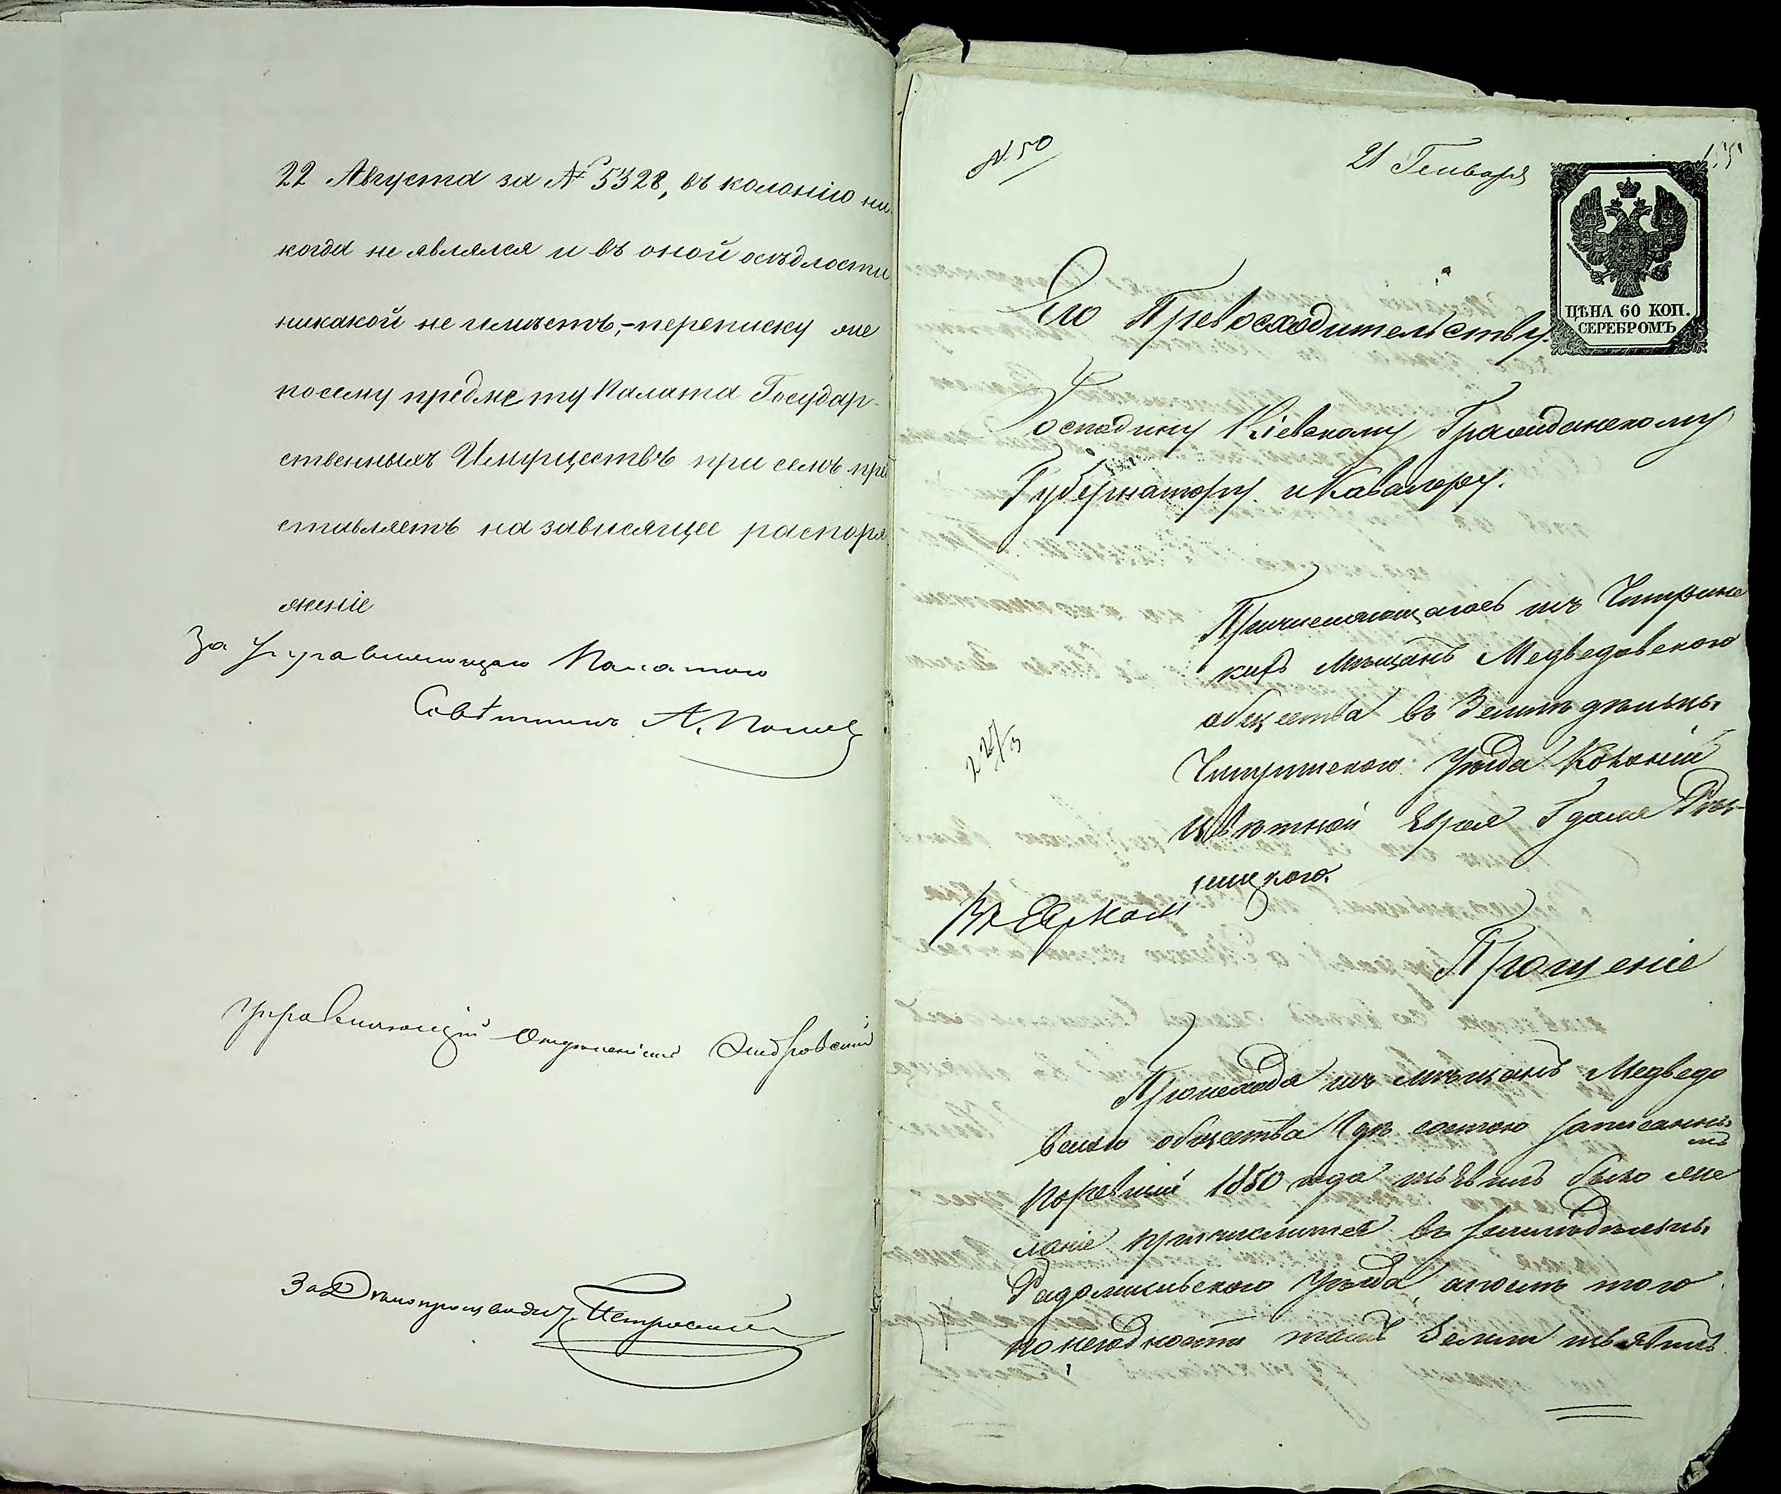 22 Августа за № 5328, въ колонію ни-
когда не являлся и въ оной осѣдлости
никакой не имѣетъ,-переписку же
по сему предмету Палата Государ-
ственныхъ Имуществъ при семъ пред
ставляетъ на зависящее распоря
женіе
За Управляющаго Палатою
Совѣтникъ А.
Управляющій Отдѣленіемъ
За Дѣлопроизводит. Петровскій
№ 50
21 Генваря
ЦѢНА 60 КОП.
СЕРЕБРОМЪ
Его Превосходительству
Господину Кіевскому Гражданскому
Губернатору и Кавалеру.
Причисляющагося изъ Чигринс
кихъ мѣщанъ Медведовского
общества въ Земледѣльцы
Чигринского Уѣзда Колоніи
Израелитской Еврея
22/3
Прошеніе
Происходя изъ мѣщанъ Медведо
вскаго общества гдѣ состою записаннымъ
по ревизіи 1850 года изъявилъ было же
ланіе причислится въ земледѣльцы
Радомысльского Уѣзда, а послѣ того
по негодности тамъ Земли изъявилъ